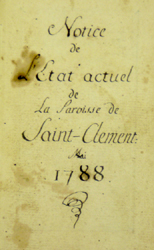 Notice
de
L'Etat actuel
de
La Paroisse de
Saint-Clement.
Mai
1788